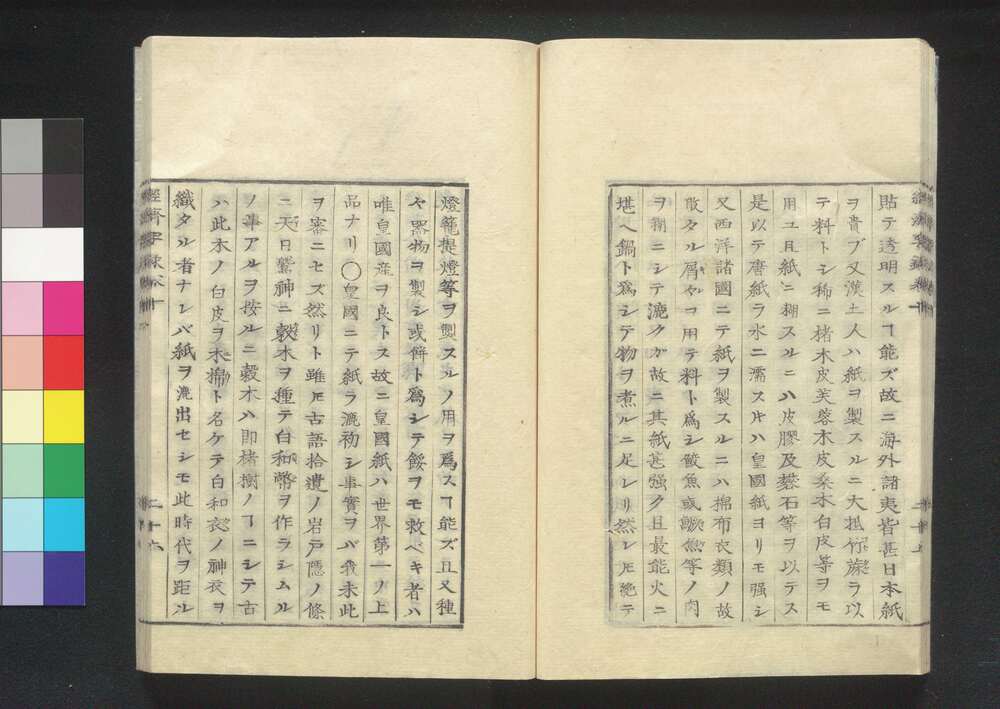 貼テ透明スルヿ能ズ故ニ海外諸夷皆甚日本紙
ヲ貴ブ又漢土人ハ紙ヲ製スルニ大抵竹蔴ヲ以
テ料トシ稀ニ楮木皮芙蓉木皮桑木白皮等ヲモ
用ユ且紙ニ糊スルニハ皮膠及礬石等ヲ以テス
是以テ唐紙ヲ水ニ濡スキハ皇國紙ヨリモ强シ
又西洋諸國ニテ紙ヲ製スルニハ棉布衣類ノ故
敗タル屑ヤヲ用テ料ト爲シ鮫魚或鱖魚等ノ肉
ヲ糊ニシテ漉クガ故ニ其紙甚强ク且最能火ニ
堪ヘ鍋ト爲シテ物ヲ煮ルニ足レリ然レ𪜈絶テ
燈籠提燈等ヲ製スルノ用ヲ爲スヿ能ズ且又種
々器物ヲ製シ或餠ト爲シテ餒ヲモ救ベキ者ハ
唯皇國産ヲ良トス故ニ皇國紙ハ世界第一ノ上
品ナリ〇皇國ニテ紙ヲ漉初シ事實ヲバ我未此
ヲ審ニセズ然リト雖𪜈古語拾遺ノ岩戸隱ノ條
ニ天日鷲神ニ穀木ヲ種テ白和幣ヲ作ラシムル
ノ事アルヲ按ルニ穀木ハ即楮樹ノヿニシテ古
ハ此木ノ白皮ヲ木棉ト名ケテ白和衣ノ神衣ヲ
織タル者ナレバ紙ヲ漉出セシモ此時代ヲ距ル
二十六